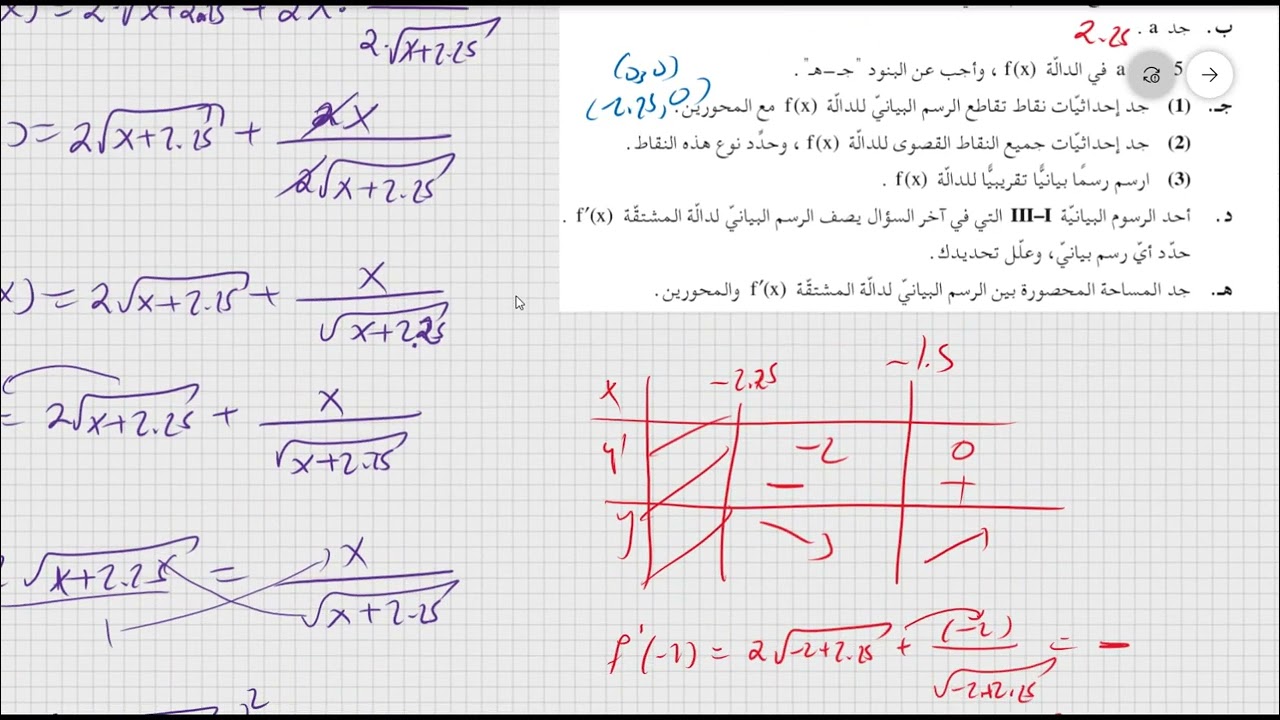 x) = 2·√x+2.25 + 2x·
2·√x+2.25
) = 2√x+2.25 + 2x / 2√x+2.25
x) = 2√x+2.25 + x / √x+2.25
= 2√x+2.25 + x / √x+2.25
√x+2.25 / 1 = x / √x+2.25
2
ب. جد a . 2.25
a في الدالّة f(x) ، وأجب عن البنود "جـ–هـ" .
(0,0)
جـ. (1) جد إحداثيّات نقاط تقاطع الرسم البيانيّ للدالّة f(x) مع المحورين.
(2) جد إحداثيّات جميع النقاط القصوى للدالّة f(x) ، وحدِّد نوع هذه النقاط.
(3) ارسم رسمًا بيانيًّا تقريبيًّا للدالّة f(x) .
د. أحد الرسوم البيانيّة III–I التي في آخر السؤال يصف الرسم البيانيّ لدالّة المشتقّة f′(x) .
حدّد أيّ رسم بيانيّ، وعلّل تحديدك.
هـ. جد المساحة المحصورة بين الرسم البيانيّ لدالّة المشتقّة f′(x) والمحورين.
x -2.25 -1.5
y' -2 0
- +
y
f'(-2) = 2√-2+2.25 + (-2) / √-2+2.25 = -